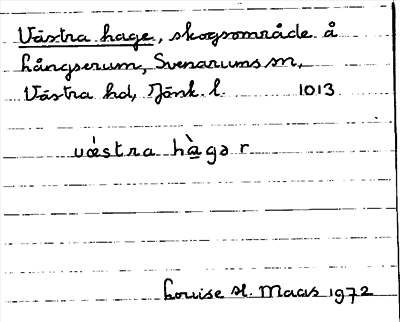 Västra hage, skogsområde å
hångserum, Svenarums sn,
Västra hd, Jönk. l. 1013
væ̀stra hàgər
Louise H. Maas 1972